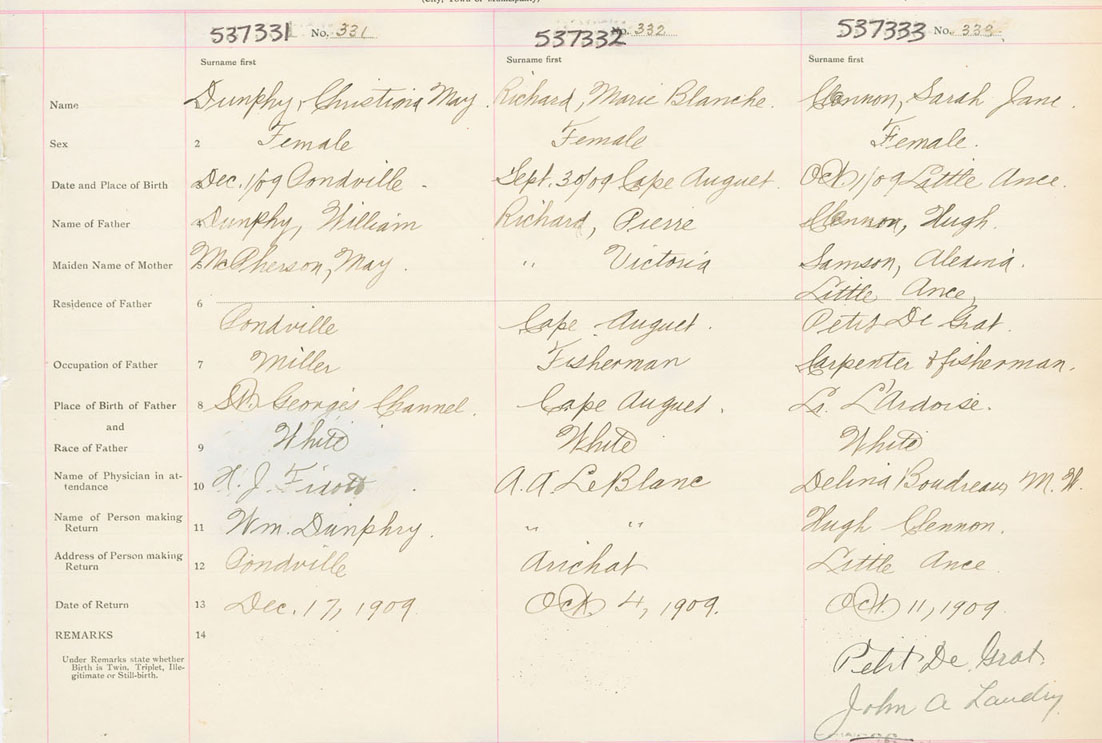 (City, Town or Municipality)
537331 No. 331 537332 No. 332 537333 No. 333
Surname first Surname first Surname first
Name Dunphy, Christina May. Richard, Marie Blanche. Clennon, Sarah Jane.
Sex 2 Female Female Female.
Date and Place of Birth Dec. 1/09 Pondville. Sept. 30/09 Cape Auguet. Oct. 1/09 Little Ance.
Name of Father 4 Dunphy, William Richard, Pierre Clennon, Hugh.
Maiden Name of Mother McPherson, May. " Victoria Samson, Aledina.
Little Ance,
Residence of Father 6
Pondville Cape Auguet. Petit De Grat.
Occupation of Father 7 Miller Fisherman Carpenter & fisherman.
Place of Birth of Father 8 St. George's Channel. Cape Auguet. L'Ardoise.
and
Race of Father 9 White White White
Name of Physician in at-
tendance 10 H. J. A. A. LeBlanc Delina Boudreau M. W.
Name of Person making
Return 11 Wm. Dunphry. " " Hugh Clennon.
Address of Person making
Return 12 Pondville Arichat Little Ance.
Date of Return 13 Dec. 17, 1909. Oct. 4, 1909. Oct. 11, 1909.
REMARKS 14
Under Remarks state whether
Birth is Twin, Triplet, Ille-
gitimate or Still-birth.
Petit De Grat.
John A Landry